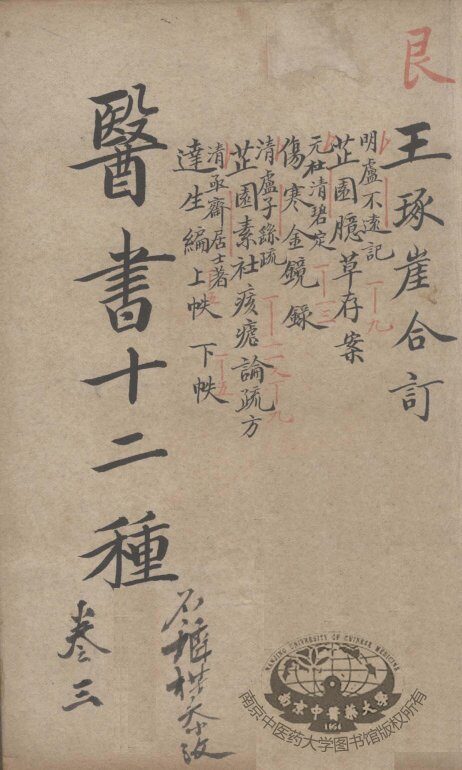 艮
王琢崖合訂
明盧不遠記
芷園臆草存案
元杜清碧定
傷寒金鏡錄
清盧子繇疏
芷園素社痎瘧論疏方
清亟齋居士著
達生編上帙 下帙
醫書十二種
卷三
NANJING UNIVERSITY OF CHINESE MEDICINE
南京中醫藥大學
1954
南京中医药大学图书馆版权所有